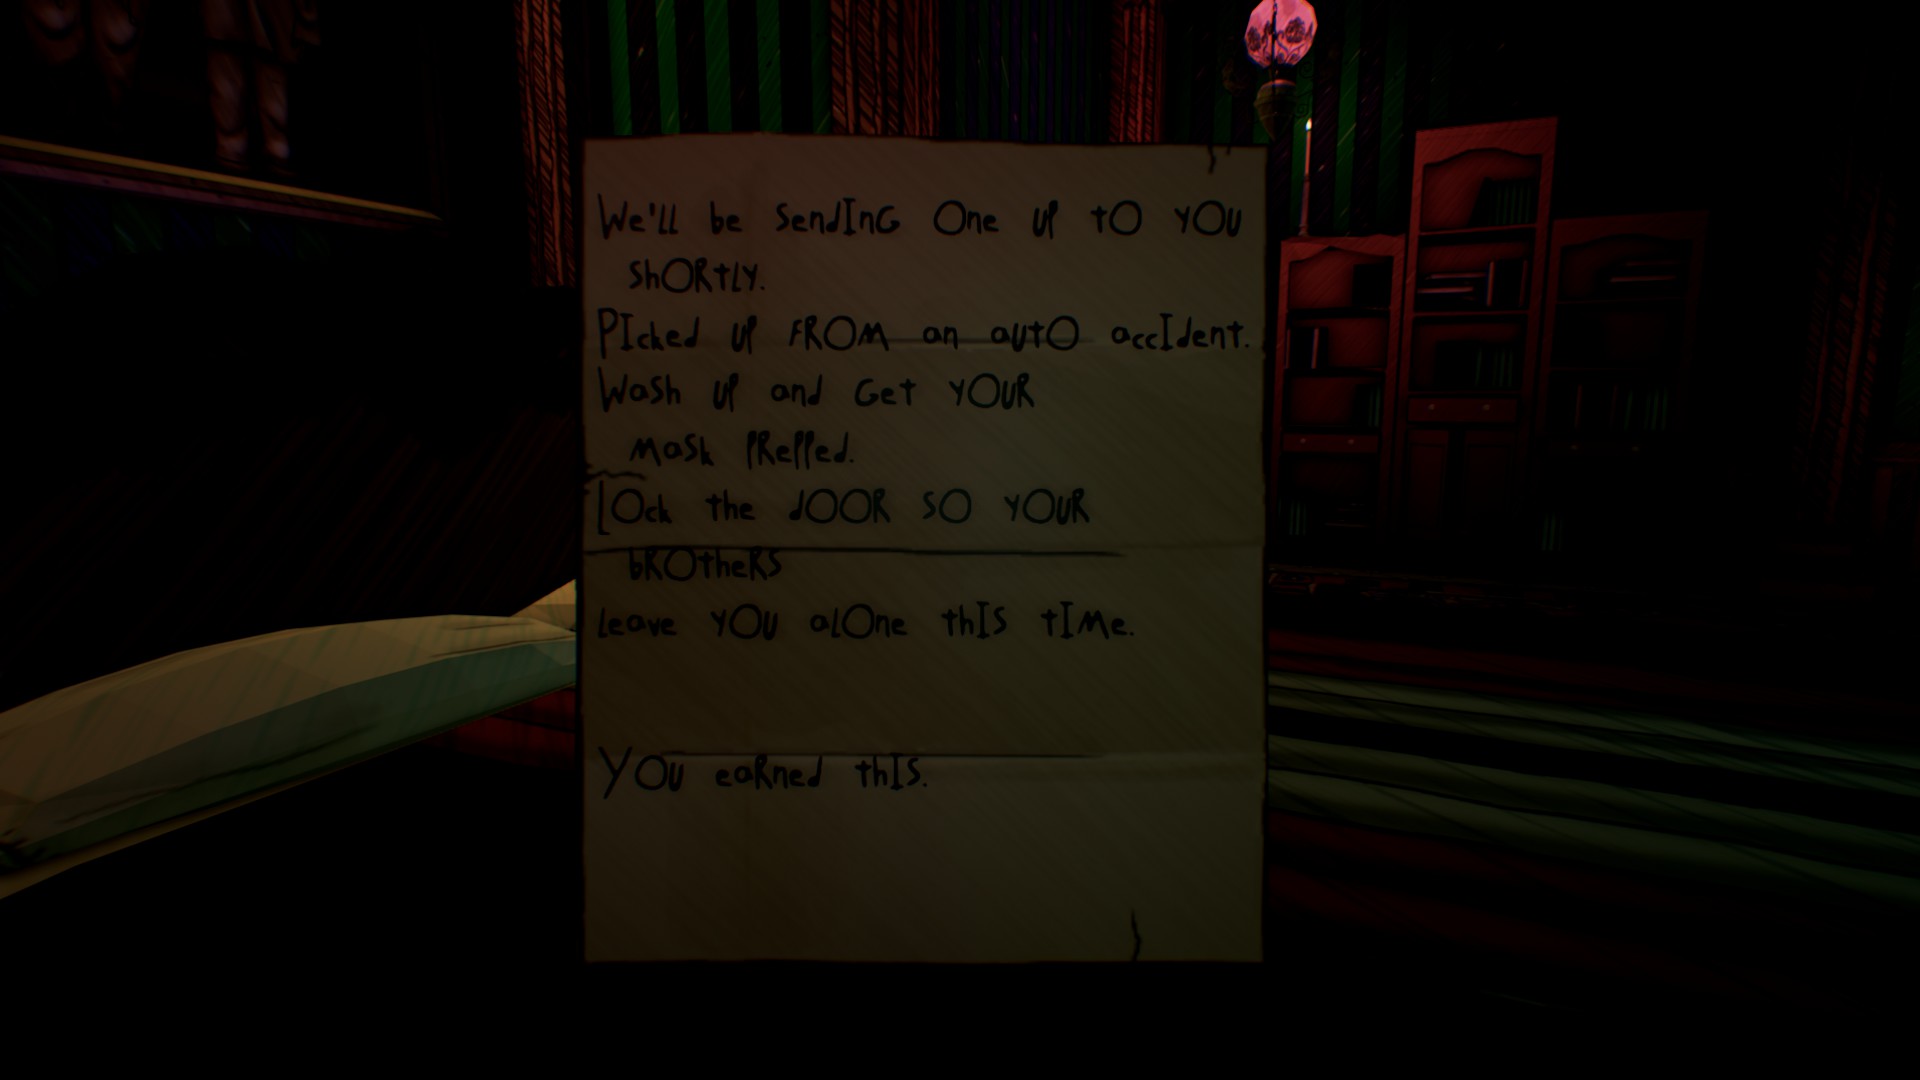 We'll be sendInG One uP tO yOU
shORtLy.
PIcked uP FROM an autO accIdent.
Wash uP and Get yOUR
mask PRePPed.
LOck the dOOR sO yOUR
bROtheRs
leave yOU alOne thIs tIMe.
YOu eaRned thIs.